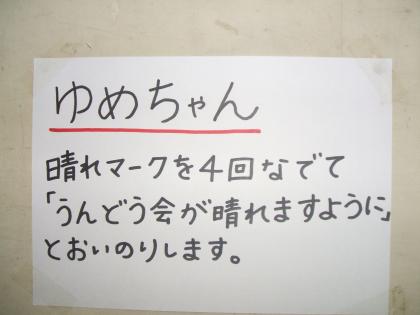 ゆめちゃん
晴れマークを4回なでて
「うんどう会が晴れますように」
とおいのりします。